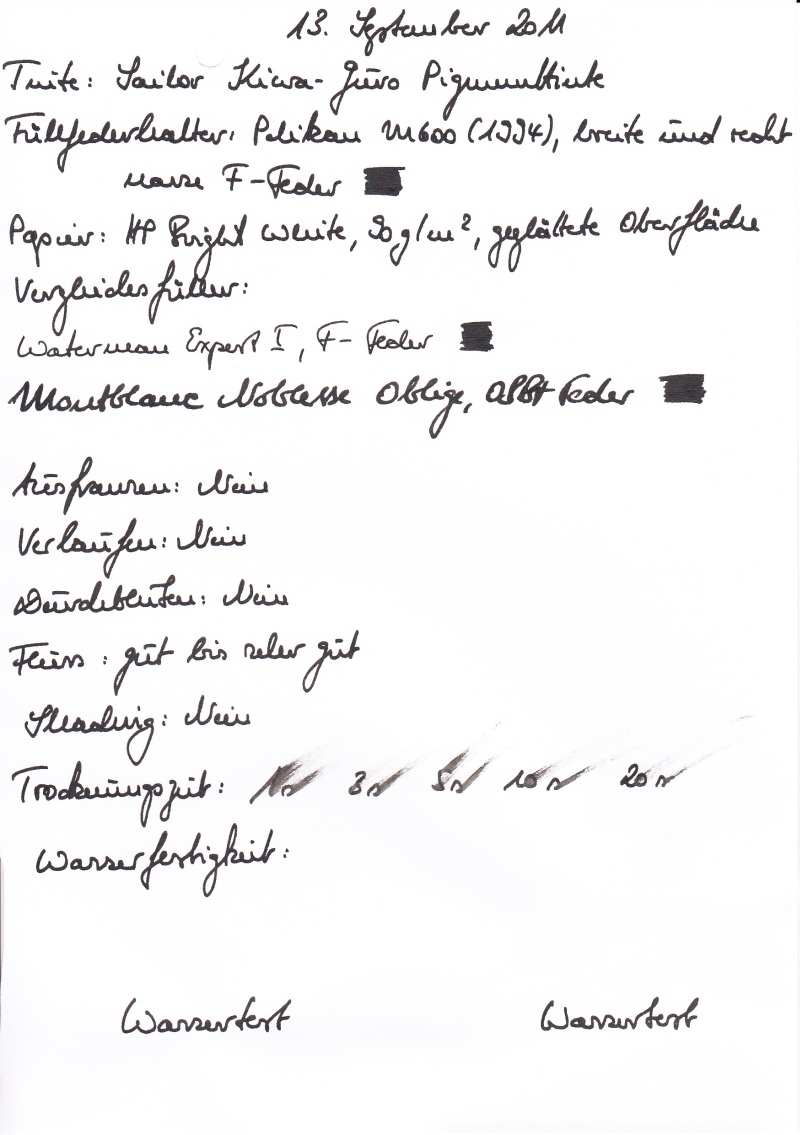 13. September 2011
Tinte: Sailor Kiwa-Guro Pigmenttinte
Füllfederhalter: Pelikan M600 (1994), breite und recht
nasse F-Feder
Papier: HP Bright White, 90 g/m², geglättete Oberfläche
Vergleichsfüller:
Waterman Expert I, F-Feder
Montblanc Noblesse Oblige, Feder
Ausfransen: Nein
Verlaufen: Nein
Durchbluten: Nein
Fluss: gut bis sehr gut
Shading: Nein
Trocknungszeit: 1s 3s 5s 10s 20s
Wasserfestigkeit:
Wassertest Wassertest